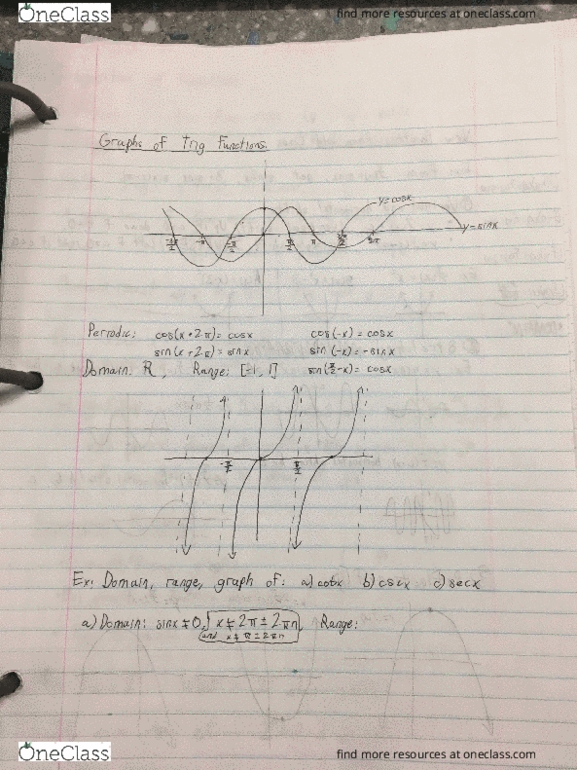 OneClass
find more resources at oneclass.com
Graphs of Trig Functions.
y=cosx
y=sinx
-3π/2 -π -π/2 π/2 π 3π/2 2π
Periodic: cos(x+2π)=cosx cos(-x)=cosx
sin(x+2π)=sinx sin(-x)=-sinx
Domain: R, Range: [-1, 1] sin(π/2-x)=cosx
-π/2 π/2
Ex: Domain, range, graph of: a) cotx b) cscx c) secx
a) Domain: sinx≠0, x≠2π±2πn, Range:
and x≠π±2πn
OneClass
find more resources at oneclass.com